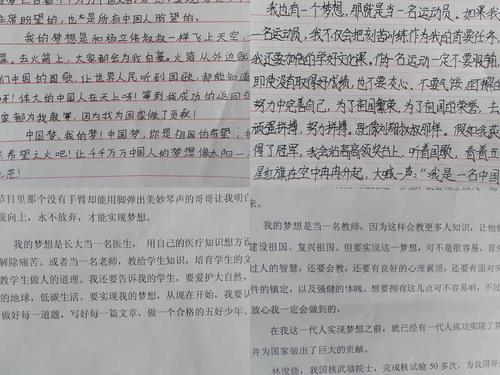 席盼望的，也是所有中国人盼望的。
我的梦想是和杨立伟叔叔一样飞上天空，
去火箭上，大家都为我自豪。火箭从外边
们中国的国歌，让世界人民听到国歌，都能知道
呀！伟大的中国人在天上呀！等到我成功的返回
家都为我鼓掌，因为我为国家做了贡献！
中国梦，我的梦！中国梦，你是祖国的希望！
希望之火吧！让千千万万中国人的梦想像太阳一
芒！
我也有一个梦想，那就是当一名运动员。如果我
一名运动员，我不仅会把刻苦训练作为我的首要任务，
我还要加倍的学好文化课。作为一名运动员一定不要服输，
即使没有取得好成绩，也不要灰心、不要气馁
努力中完善自己，为了祖国繁荣，为了祖国的荣誉，去
顽强拼搏，努力拼搏，就像刘翔叔叔那样。假如我获
得了冠军，我会站高高领奖台上，听着国歌，看着五
星红旗在空中冉冉升起，大喊一声：“我是一名中国
节目里那个没有手臂却能用脚弹出美妙琴声的哥哥让我明白
观向上，永不放弃，才能实现梦想。
我的梦想是长大当一名医生， 用自己的医疗知识想方设
解除痛苦。或者当一名老师，教给学生知识，培育学生的文
教学生做人的道理。我还要告诉我的学生，要爱护大自然，
的地球，低碳生活。要实现我的梦想，从现在开始，我要认
做好每一道题，写好每一篇文章，做一个合格的五好少年。
来。
我的梦想是当一名教师，因为这样会教更多人知识，让他们
建设祖国、复兴祖国。但要实现这一梦想，可不是很容易，首先
过人的智慧，还要会教，还要有良好的心理素质，还要有面对突
件的镇定，以及强健的体魄。想要拥有这几点可不容易呐，不过
放心我一定会做到的。
在我这一代人实现梦想之前，就已经有一代人成功实现了梦
并为国家做出了巨大的贡献。
林俊德，我国核武器院士，完成核试验 50 多次，为我国导